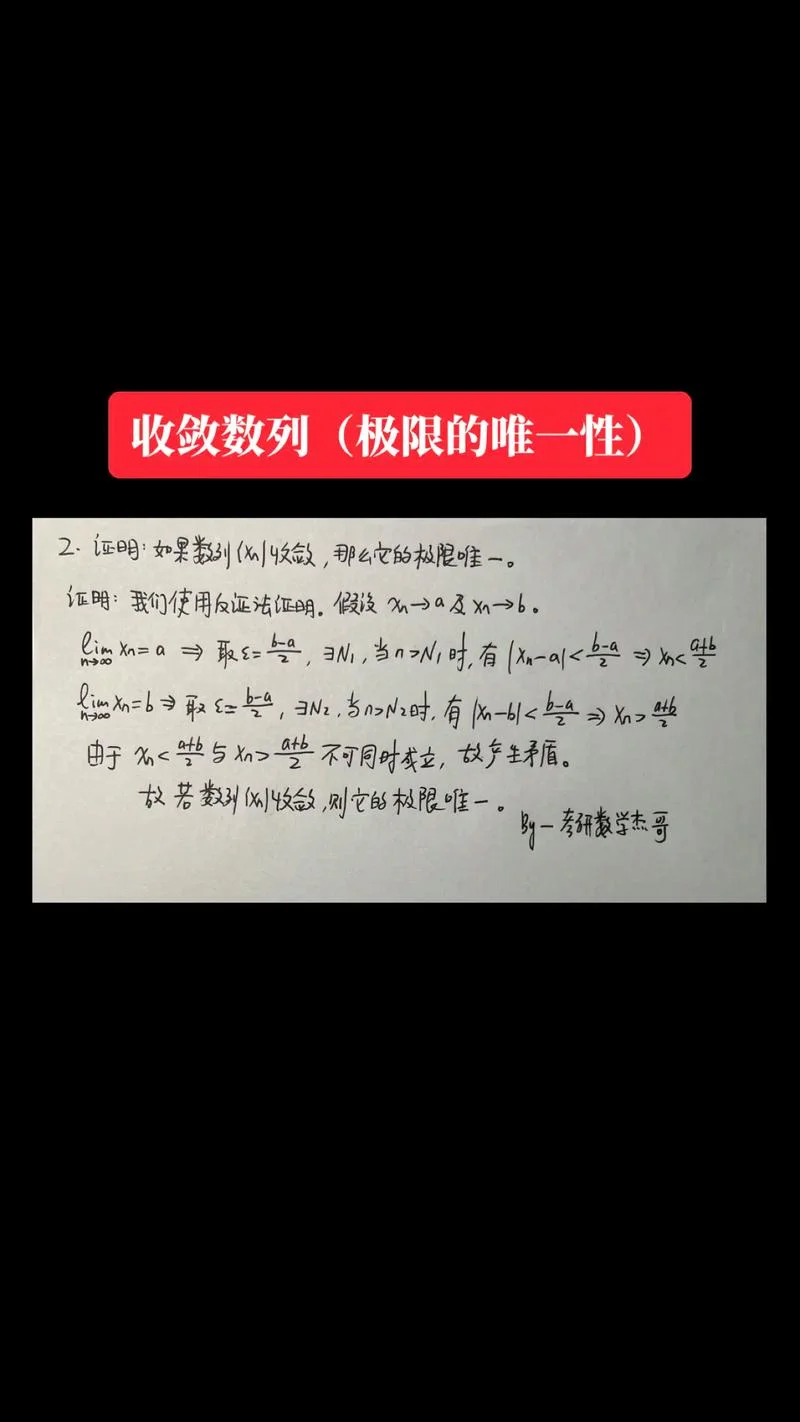 收敛数列（极限的唯一性）
2. 证明：如果数列{xn}收敛，那么它的极限唯一。
证明：我们使用反证法证明。假设 xn→a 及 xn→b。
lim n→∞ xn=a ⇒ 取 ε=(b-a)/2，∃N1，当 n>N1 时，有 |xn-a|<(b-a)/2 ⇒ xn<(a+b)/2
lim n→∞ xn=b ⇒ 取 ε=(b-a)/2，∃N2，当 n>N2 时，有 |xn-b|<(b-a)/2 ⇒ xn>(a+b)/2
由于 xn<(a+b)/2 与 xn>(a+b)/2 不可同时成立，故产生矛盾。
故若数列{xn}收敛，则它的极限唯一。
By—考研数学杰哥